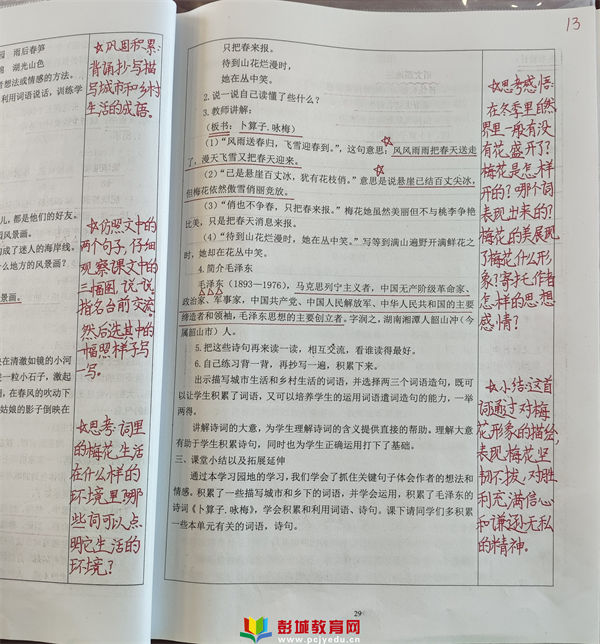 13
园　雨后春笋
湖光山色
者想法或情感的方法。
利用词语说话，训练学
儿，都是他们的好友。
风景画。
成了迷人的海岸线。
么地方的风景画。
景画。
央在清澈如镜的小河
一粒小石子，激起
，在春风的吹动下
姑娘的影子倒映在
☆巩固积累:
背诵抄写描
写城市和乡村
生活的成语。
☆仿照文中的
两个句子，仔细
观察课文中的
三幅图，说一说，
指名台前交流。
然后选其中的
一幅照样子写一
写。
☆思考:词里
的梅花，生活
在什么样的
环境里?哪
些词可以点
明它生活的
环境?
只把春来报。
待到山花烂漫时，
她在丛中笑。
2.说一说自己读懂了些什么?
3.教师讲解:
(板书: 卜算子.咏梅)
(1)“风雨送春归，飞雪迎春到。”，这句意思: 风风雨雨把春天送走
了，漫天飞雪又把春天迎来。
(2)“已是悬崖百丈冰，犹有花枝俏。”意思是说悬崖已结百丈尖冰，
但梅花依然傲雪俏丽竞放。
(3)“俏也不争春，只把春来报。”梅花她虽然美丽但不与桃李争艳
比美，只是把春天消息来报。
(4)“待到山花烂漫时，她在丛中笑。”写等到满山遍野开满鲜花之
时，她却在花丛中笑。
4.简介毛泽东
毛泽东(1893—1976)，马克思列宁主义者，中国无产阶级革命家、
政治家、军事家，中国共产党、中国人民解放军、中华人民共和国的主要
缔造者和领袖，毛泽东思想的主要创立者。字润之，湖南湘潭人韶山冲(今
属韶山市)人。
5.把这些诗句再来读一读，相互交流，看谁读得最好。
6.自己练习背一背，再抄写一遍，积累下来。
出示描写城市生活和乡村生活的词语，并选择两三个词语造句，既可
以让学生积累了词语，又可以培养学生的运用词语遣词造句的能力，一举
两得。
讲解诗词的大意，为学生理解诗词的含义提供直接的帮助。理解大意
有助于学生积累诗句，同时也为学生正确运用打下了基础。
三、课堂小结以及拓展延伸
通过本学习园地的学习，我们学会了抓住关键句子体会作者的想法和
情感。积累了一些描写城市和乡下的词语，并学会运用，积累了毛泽东的
诗词《卜算子.咏梅》，学会积累和利用词语、诗句。课下请同学们多积累
一些本单元有关的词语，诗句。
☆思考感悟:
在冬季里自然
界里一般有没
有花盛开了?
梅花是怎样
开的?哪个词
表现出来的?
梅花的美展现
了梅花什么形
象?寄托作者
怎样的思想
感情?
☆小结:这首
词通过对梅
花形象的描绘，
表现梅花坚
韧不拔，对胜
利充满信心
和谦逊无私
的精神。
29
彭城教育网
www.pcjyedu.cn